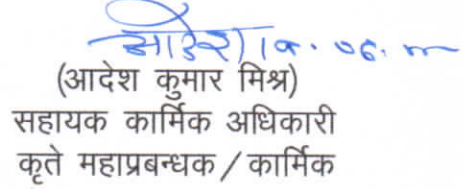 आदेश
(आदेश कुमार मिश्र)
सहायक कार्मिक अधिकारी
कृते महाप्रबन्धक / कार्मिक